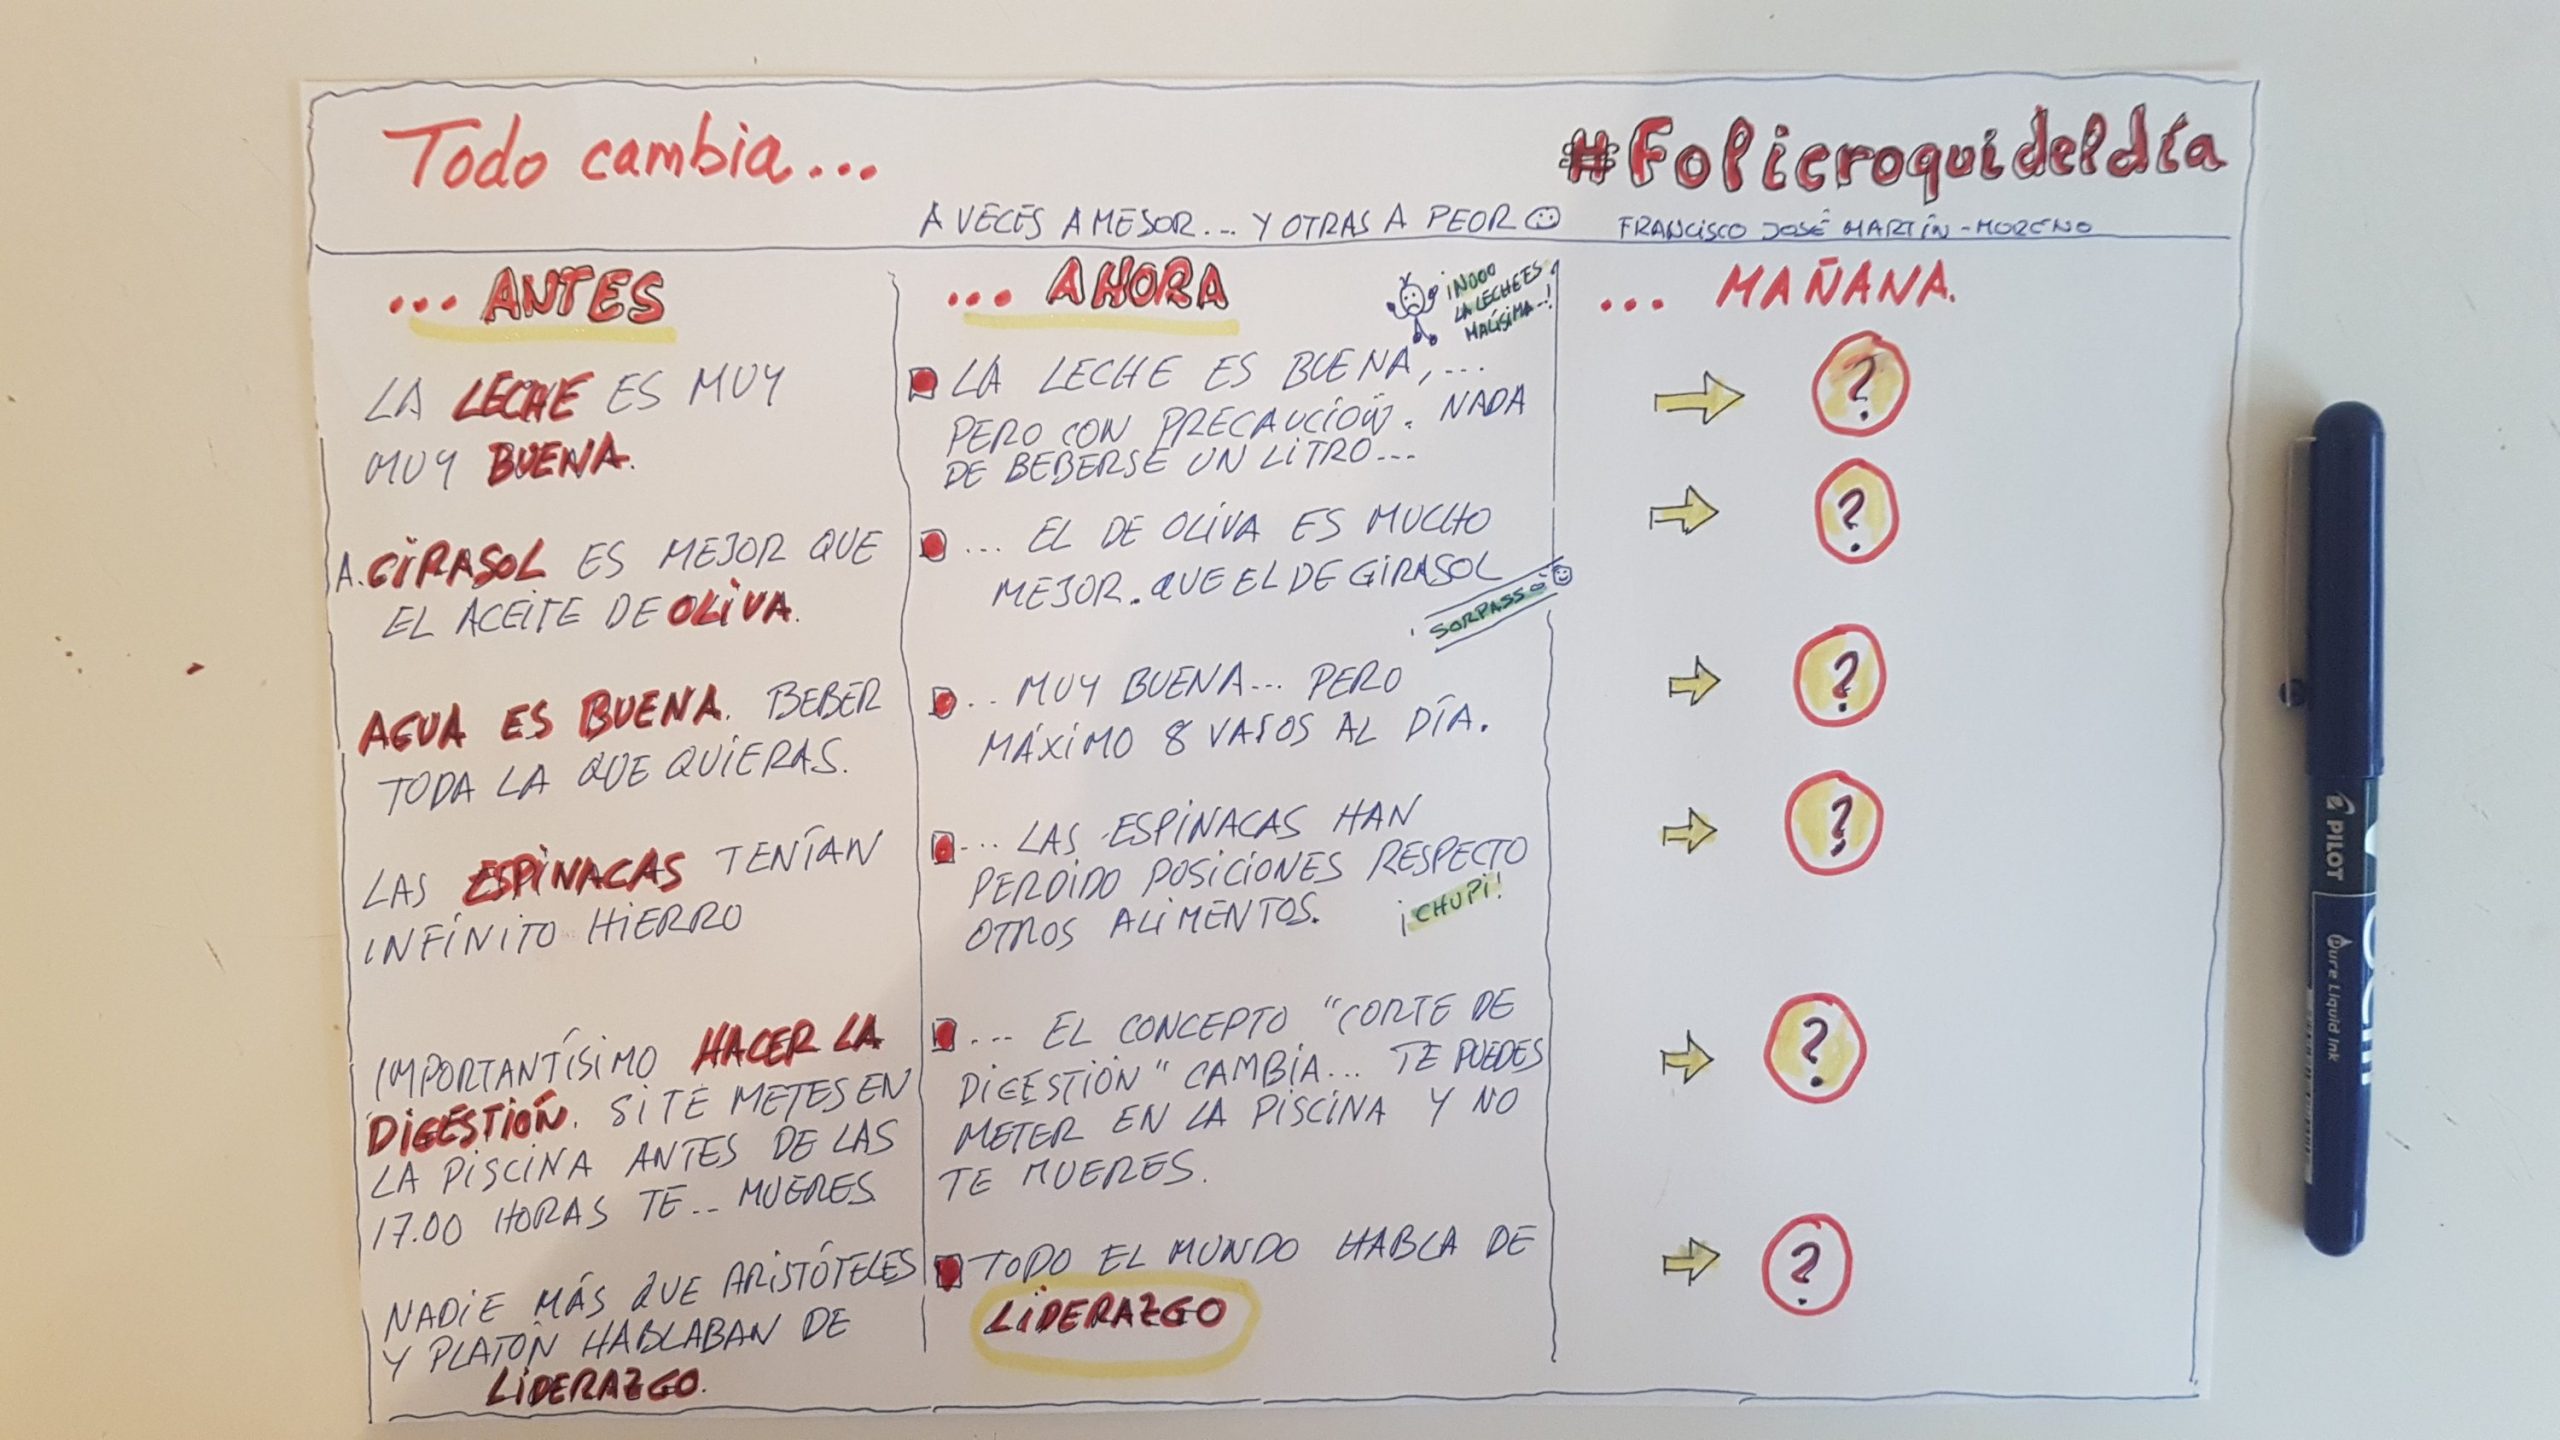 Todo cambia...
#Folicroquideldía
A VECES A MEJOR... Y OTRAS A PEOR
FRANCISCO JOSÉ MARTÍN-MORENO
... ANTES
LA LECHE ES MUY
MUY BUENA.
A. GIRASOL ES MEJOR QUE
EL ACEITE DE OLIVA.
AGUA ES BUENA. BEBER
TODA LA QUE QUIERAS.
LAS ESPINACAS TENÍAN
INFINITO HIERRO
IMPORTANTÍSIMO HACER LA
DIGESTIÓN. SI TE METES EN
LA PISCINA ANTES DE LAS
17.00 HORAS TE... MUERES
NADIE MÁS QUE ARISTÓTELES
Y PLATÓN HABLABAN DE
LIDERAZGO.
... AHORA
¡NOOO
LA LECHE ES
MALÍSIMA...!
LA LECHE ES BUENA,...
PERO CON PRECAUCIÓN. NADA
DE BEBERSE UN LITRO...
... EL DE OLIVA ES MUCHO
MEJOR. QUE EL DE GIRASOL
SORPASSO
... MUY BUENA... PERO
MÁXIMO 8 VASOS AL DÍA.
... LAS ESPINACAS HAN
PERDIDO POSICIONES RESPECTO
OTROS ALIMENTOS. ¡CHUPI!
... EL CONCEPTO "CORTE DE
DIGESTIÓN" CAMBIA... TE PUEDES
METER EN LA PISCINA Y NO
TE MUERES.
TODO EL MUNDO HABLA DE
LIDERAZGO
... MAÑANA.
?
?
?
?
?
?
PILOT
Pure Liquid Ink